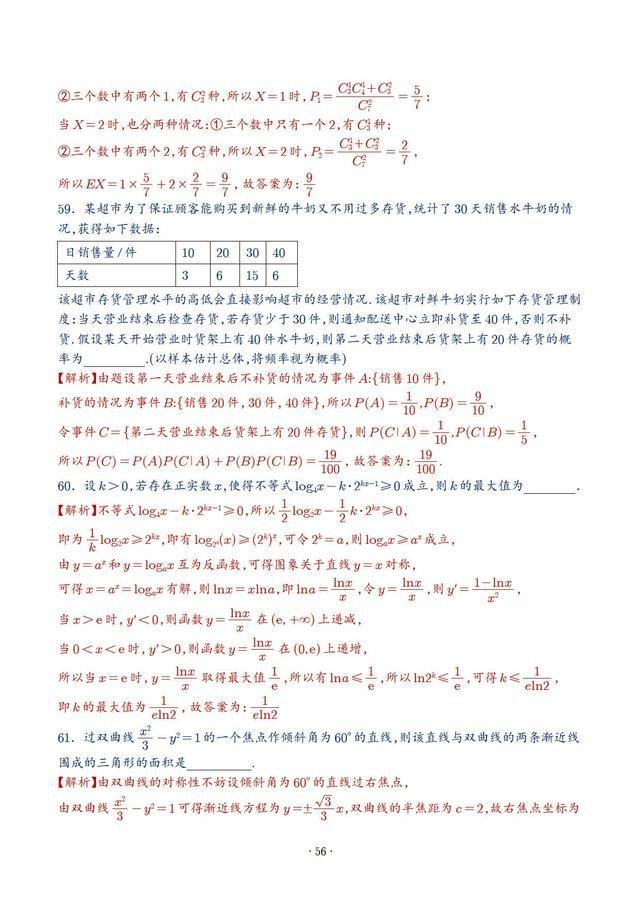 ②三个数中有两个1,有C₃²种,所以X=1时,P₁=(C₃¹C₄¹+C₃²)/C₇²=5/7;
当X=2时,也分两种情况:①三个数中只有一个2,有C₃¹种;
②三个数中有两个2,有C₃²种,所以X=2时,P₂=(C₃¹+C₃²)/C₇²=2/7,
所以EX=1×5/7+2×2/7=9/7,故答案为:9/7
59. 某超市为了保证顾客能购买到新鲜的牛奶又不用过多存货,统计了30天销售水牛奶的情
况,获得如下数据:
日销售量/件 10 20 30 40
天数 3 6 15 6
该超市存货管理水平的高低会直接影响超市的经营情况.该超市对鲜牛奶实行如下存货管理制
度:当天营业结束后检查存货,若存货少于30件,则通知配送中心立即补货至40件,否则不补
货.假设某天开始营业时货架上有40件水牛奶,则第二天营业结束后货架上有20件存货的概
率为________.(以样本估计总体,将频率视为概率)
【解析】由题设第一天营业结束后不补货的情况为事件A:{销售10件},
补货的情况为事件B:{销售20件,30件,40件},所以P(A)=1/10,P(B)=9/10,
令事件C={第二天营业结束后货架上有20件存货},则P(C|A)=1/10,P(C|B)=1/5,
所以P(C)=P(A)P(C|A)+P(B)P(C|B)=19/100,故答案为:19/100.
60. 设k>0,若存在正实数x,使得不等式log₄x-k·2^(kx-1)≥0成立,则k的最大值为________.
【解析】不等式log₄x-k·2^(kx-1)≥0,所以1/2log₂x-1/2k·2^(kx)≥0,
即为1/k log₂x≥2^(kx),即有log_(2^k)(x)≥(2^k)^x,可令2^k=a,则logₐx≥a^x成立,
由y=a^x和y=logₐx互为反函数,可得图象关于直线y=x对称,
可得x=a^x=logₐx有解,则lnx=xlna,即lna=lnx/x,令y=lnx/x,则y′=(1-lnx)/x²,
当x>e时,y′<0,则函数y=lnx/x在(e,+∞)上递减,
当0<x<e时,y′>0,则函数y=lnx/x在(0,e)上递增,
所以当x=e时,y=lnx/x取得最大值1/e,所以有lna≤1/e,所以ln2^k≤1/e,可得k≤1/(eln2),
即k的最大值为1/(eln2),故答案为:1/(eln2)
61. 过双曲线x²/3-y²=1的一个焦点作倾斜角为60°的直线,则该直线与双曲线的两条渐近线
围成的三角形的面积是________.
【解析】由双曲线的对称性不妨设倾斜角为60°的直线过右焦点,
由双曲线x²/3-y²=1可得渐近线方程为y=±√3/3x,双曲线的半焦距为c=2,故右焦点坐标为
·56·